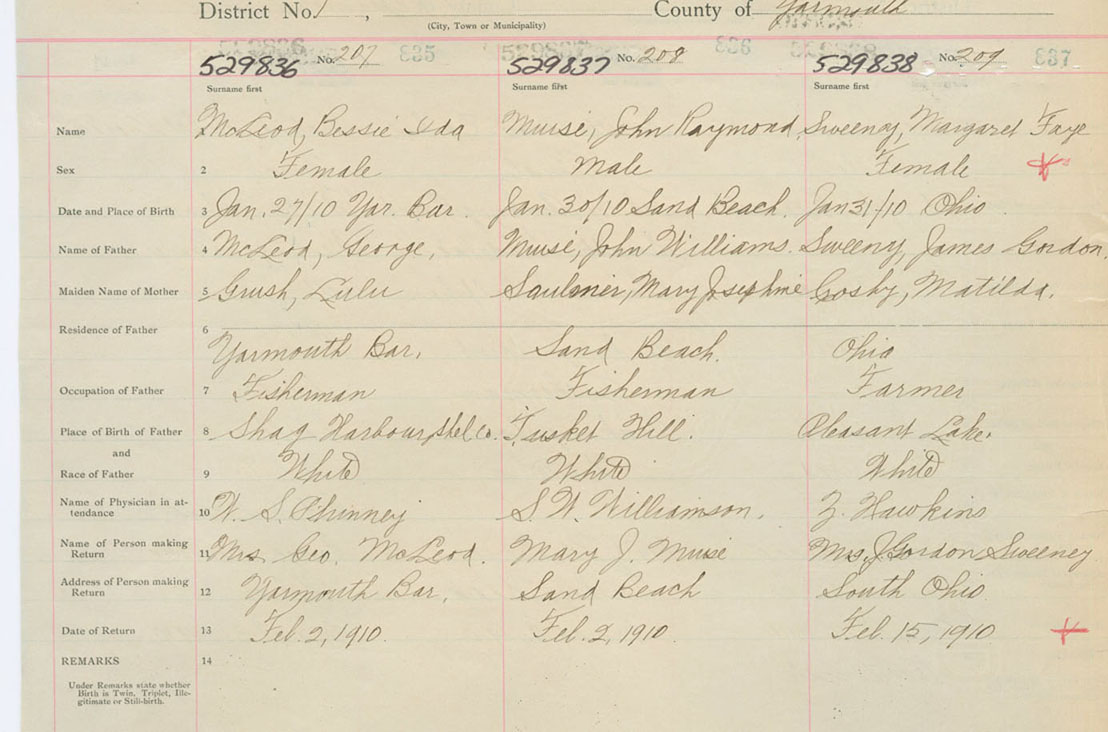 District No. 1 , County of Yarmouth
(City, Town or Municipality)
529836 No. 207 835 529837 No. 208 836 529838 No. 209 837
Surname first Surname first Surname first
Name McLeod, Bessie Ida Muise, John Raymond, Sweeney, Margaret Faye
Sex 2 Female Male Female
Date and Place of Birth 3 Jan. 27/10 Yar. Bar. Jan. 30/10 Sand Beach. Jan 31/10 Ohio
Name of Father 4 McLeod, George, Muise, John Williams. Sweeny, James Gordon,
Maiden Name of Mother 5 Grush, Lulu Saulnier, Mary Josephine Crosby, Matilda.
Residence of Father 6
Yarmouth Bar, Sand Beach. Ohio
Occupation of Father 7 Fisherman Fisherman Farmer
Place of Birth of Father 8 Shag Harbour, Shel Co. Tusket Hill. Pleasant Lake.
and
Race of Father 9 White White White
Name of Physician in at-
tendance 10 W. S. Phinney S. W. Williamson. Z. Hawkins
Name of Person making
Return 11 Mrs Geo. McLeod. Mary J. Muise Mrs. J Gordon Sweeney
Address of Person making
Return 12 Yarmouth Bar, Sand Beach South Ohio
Date of Return 13 Feb. 2, 1910. Feb. 2, 1910. Feb. 15, 1910
REMARKS 14
Under Remarks state whether
Birth is Twin, Triplet, Ille-
gitimate or Still-birth.